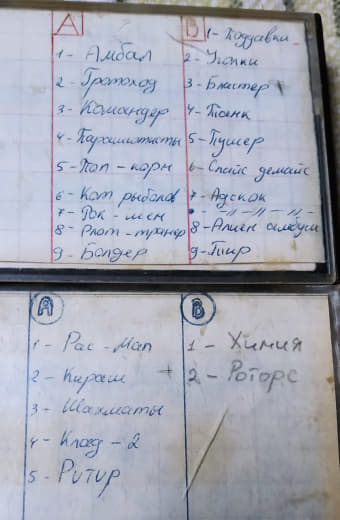 A
1 - Амбал
2 - Гротоход
3 - Командер
4 - Парашютисты
5 - Поп - корн
6 - Кот рыболов
7 - Рок - мен
8 - Рлот - транер
9 - Болдер
B
1 - Поддавки
2 - Гонки
3 - Бластер
4 - Танк
5 - Пушер
6 - Спайс демайс
7 - Адскок
- // - // - // -
8 - Алиен альбум
9 - Тир
A
1 - Pac - Man
2 - Кираш
3 - Шахматы
4 - Клад - 2
5 - Ритир
B
1 - Химия
2 - Роторс